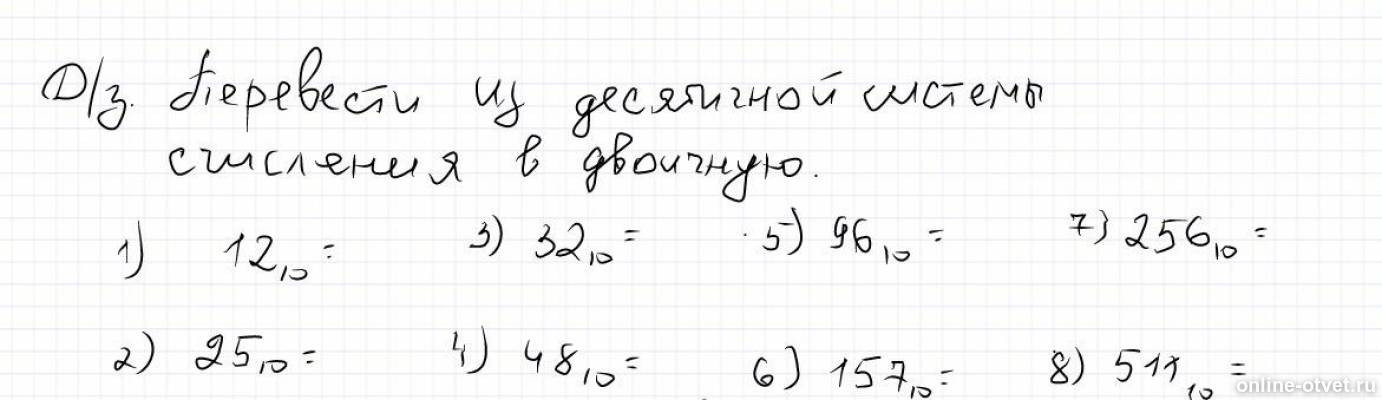 Д/з. Перевести из десятичной системы
счисления в двоичную.
1) 12₁₀ = 3) 32₁₀ = 5) 96₁₀ = 7) 256₁₀ =
2) 25₁₀ = 4) 48₁₀ = 6) 157₁₀ = 8) 511₁₀ =
online-otvet.ru